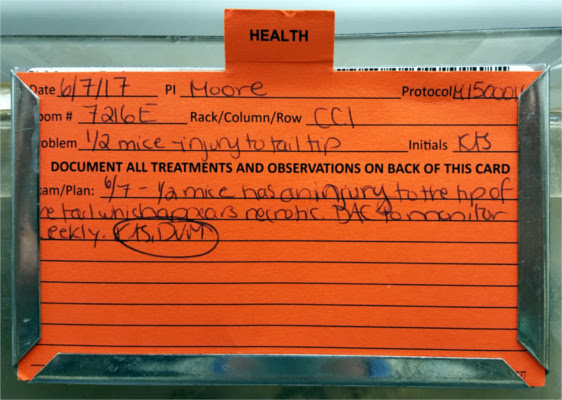 HEALTH
Date 6/7/17 PI Moore Protocol M150001
oom # 7216E Rack/Column/Row CC1
oblem 1/2 mice - injury to tail tip Initials KTS
DOCUMENT ALL TREATMENTS AND OBSERVATIONS ON BACK OF THIS CARD
am/Plan: 6/7 - 1/2 mice has an injury to the tip of
e tail which appears necrotic. to monitor
eekly. KTS, DVM